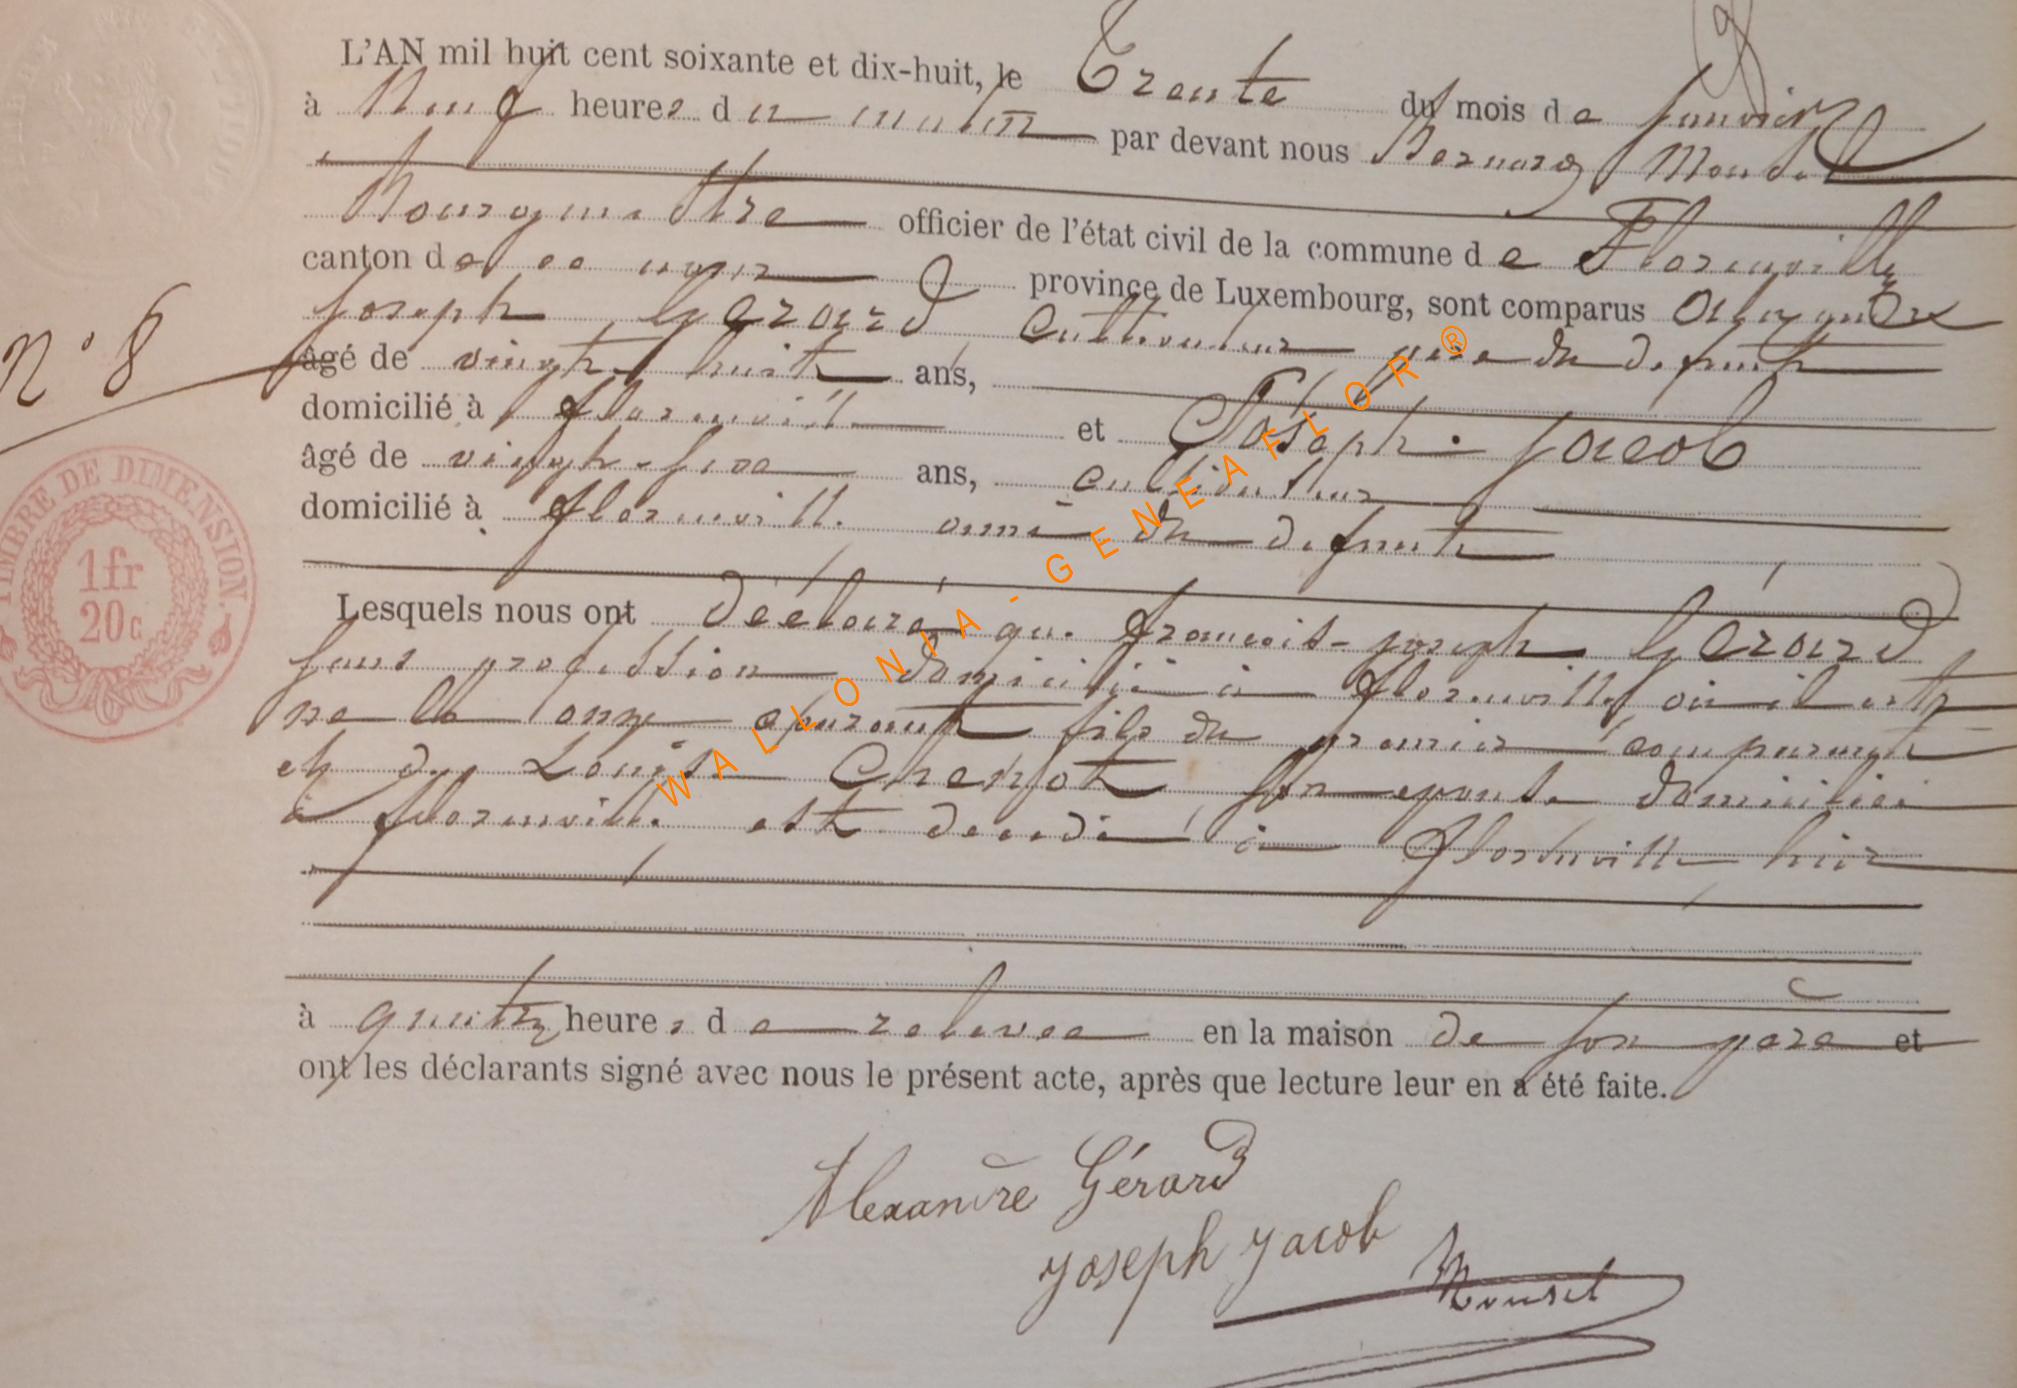 L'AN mil huit cent soixante et dix-huit, le Trente du mois de Janvier
à Neuf heures du matin par devant nous Bernard Mouset
Bourgmestre officier de l'état civil de la commune de Florenville
canton de ce nom province de Luxembourg, sont comparus Alexandre
Joseph Gerard cultivateur pere du defunt
N° 8
âgé de vingt huit ans,
domicilié à florenville et Joseph Jacob
âgé de vingt-six ans, cultivateur
domicilié à florenville ami du defunt
TIMBRE DE DIMENSION.
1fr
20c
Lesquels nous ont déclaré que francois-joseph Gerard
sans profession domicilié à florenville où il est
né le onze courant fils du premier comparant
et de Louise Chenot son epouse domiciliée
à florenville est decedé à florenville hier
à quatre heures de relevee en la maison de son père et
ont les déclarants signé avec nous le présent acte, après que lecture leur en a été faite.
Alexandre Gérard
Joseph Jacob
Mouset
WALLONIA - GENEAFLOR ®